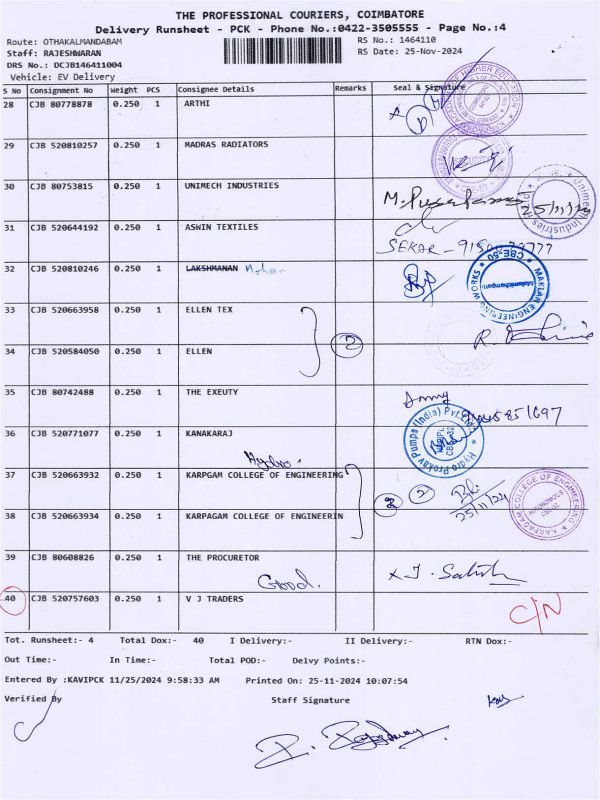 THE PROFESSIONAL COURIERS, COIMBATORE
Delivery Runsheet - PCK - Phone No.:0422-3505555 - Page No.:4
Route: OTHAKALMANDABAM RS No.: 1464110
Staff: RAJESHWARAN RS Date: 25-Nov-2024
DRS No.: DCJB146411004
Vehicle: EV Delivery
S No Consignment No Weight PCS Consignee Details Remarks Seal & Signature
28 CJB 80778878 0.250 1 ARTHI
29 CJB 520810257 0.250 1 MADRAS RADIATORS
30 CJB 80753815 0.250 1 UNIMECH INDUSTRIES
25/11/24
31 CJB 520644192 0.250 1 ASWIN TEXTILES
SEKAR -
32 CJB 520810246 0.250 1 LAKSHMANAN Mohan
MAKLAN ENGINEERING WORKS CBE-50
33 CJB 520663958 0.250 1 ELLEN TEX
2
34 CJB 520584050 0.250 1 ELLEN
35 CJB 80742488 0.250 1 THE EXEUTY
36 CJB 520771077 0.250 1 KANAKARAJ
Hydro Prokav Pumps (India) Pvt.Ltd.
Hydro.
37 CJB 520663932 0.250 1 KARPGAM COLLEGE OF ENGINEERING
2 2
25/11/24
KARPAGAM COLLEGE OF ENGINEERING
AUTONOMOUS
38 CJB 520663934 0.250 1 KARPAGAM COLLEGE OF ENGINEERIN
39 CJB 80608826 0.250 1 THE PROCURETOR
Good.
40 CJB 520757603 0.250 1 V J TRADERS
C/N
Tot. Runsheet:- 4 Total Dox:- 40 I Delivery:- II Delivery:- RTN Dox:-
Out Time:- In Time:- Total POD:- Delvy Points:-
Entered By :KAVIPCK 11/25/2024 9:58:33 AM Printed On: 25-11-2024 10:07:54
Verified By Staff Signature